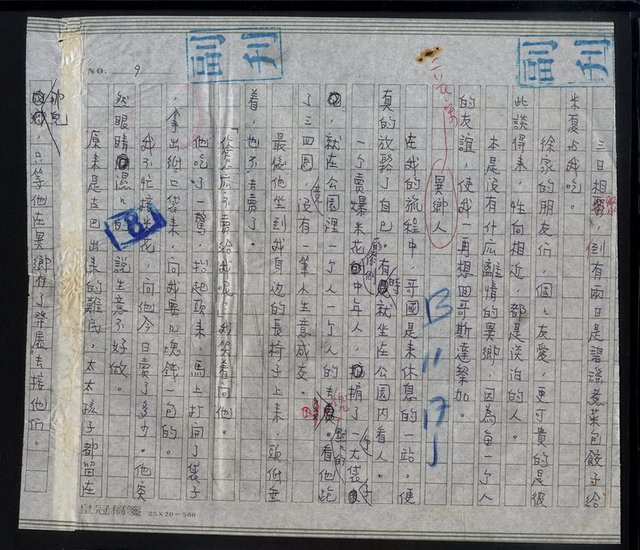 副刊
副刊
NO. 9
三日相聚,倒有兩日是碧瑤煮菜包餃子給
米夏與我吃。
徐家的朋友們,個個友愛,更可貴的是彼
此談得來,性向相近,都是淡泊的人。
本是沒有什麼離情的異鄉,因為每一個人
的友誼,使我一再想回哥斯達黎加。
異鄉人
在我的旅程中,哥國是來休息的一站,便
真的放鬆了自己,有時就坐在公園內看人。
一個賣爆米花的中年人,揹了一大袋
,就在公園裡一個人一個人的去兜。看他跑
了三四圈,沒有一筆小生意成交。
最後他坐到我身邊的長椅子上來,頭低垂
着,也不去賣了。
「你怎麼不賣給我呢?」我笑着問他。
他吃了一驚,抬起頭來,馬上打開了袋子
,拿出紙口袋來,問我要幾塊錢一包的。
我不忙接米花,問他今日賣了多少。他突
然眼睛濕濕的,說生意不好做。
原來是古巴出來的難民,太太孩子都留在
那兒,只等他在異鄉有了發展去接他們。
B
B 11 17
皇冠稿箋 25×20=500